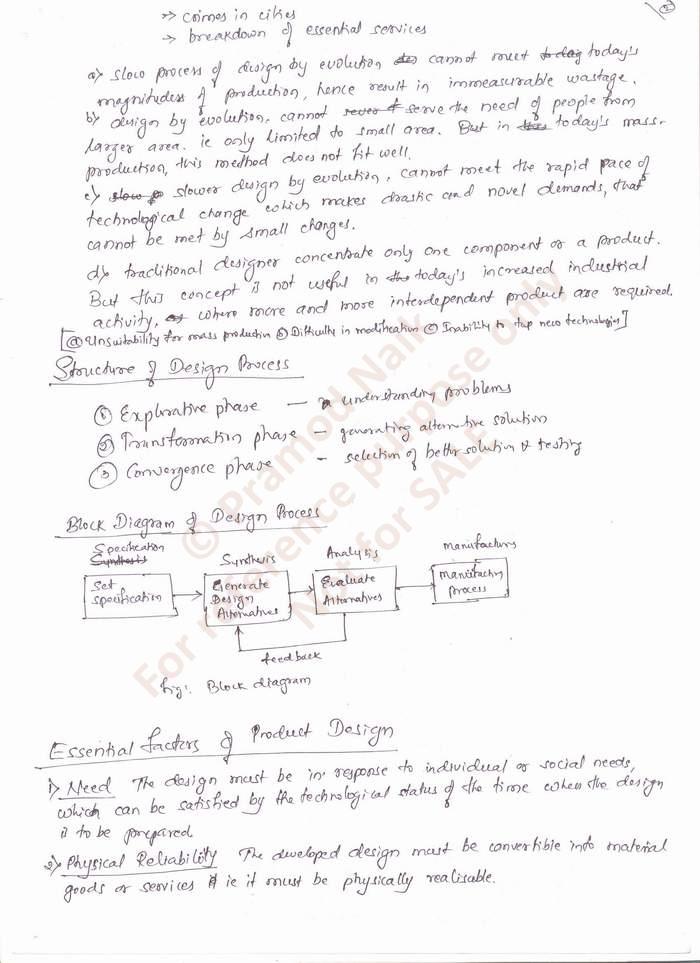 ②
→ crimes in cities
→ breakdown of essential services
a) slow process of design by evolution cannot meet today's
magnitudes of production, hence result in immeasurable wastage.
b) design by evolution, cannot serve the need of people from
larger area. ie only limited to small area. But in today's mass-
production, this method does not fit well.
c) slower design by evolution, cannot meet the rapid pace of
technological change which makes drastic and novel demands, that
cannot be met by small changes.
d) traditional designer concentrate only one component or a product.
But this concept is not useful in today's increased industrial
activity, where more and more interdependent product are required.
[ⓐ Unsuitability for mass production ⓑ Difficulty in modification ⓒ Inability to tap new technologies]
Structure of Design Process
① Explorative phase — understanding problems
② Transformation phase — generating alternative solution
③ Convergence phase - selection of better solution & testing
Block Diagram of Design Process
Specification
Synthesis
Synthesis
Analysis
manufacturing
Set
specification
Generate
Design
Alternatives
Evaluate
Alternatives
manufacturing
process
feedback
fig: Block diagram
Essential factors of Product Design
1) Need The design must be in response to individual or social needs,
which can be satisfied by the technological status of the time when the design
is to be prepared.
2) Physical Reliability The developed design must be convertible into material
goods or services ie it must be physically realisable.
© Pramod Naik
For reference purpose only
Not for SALE